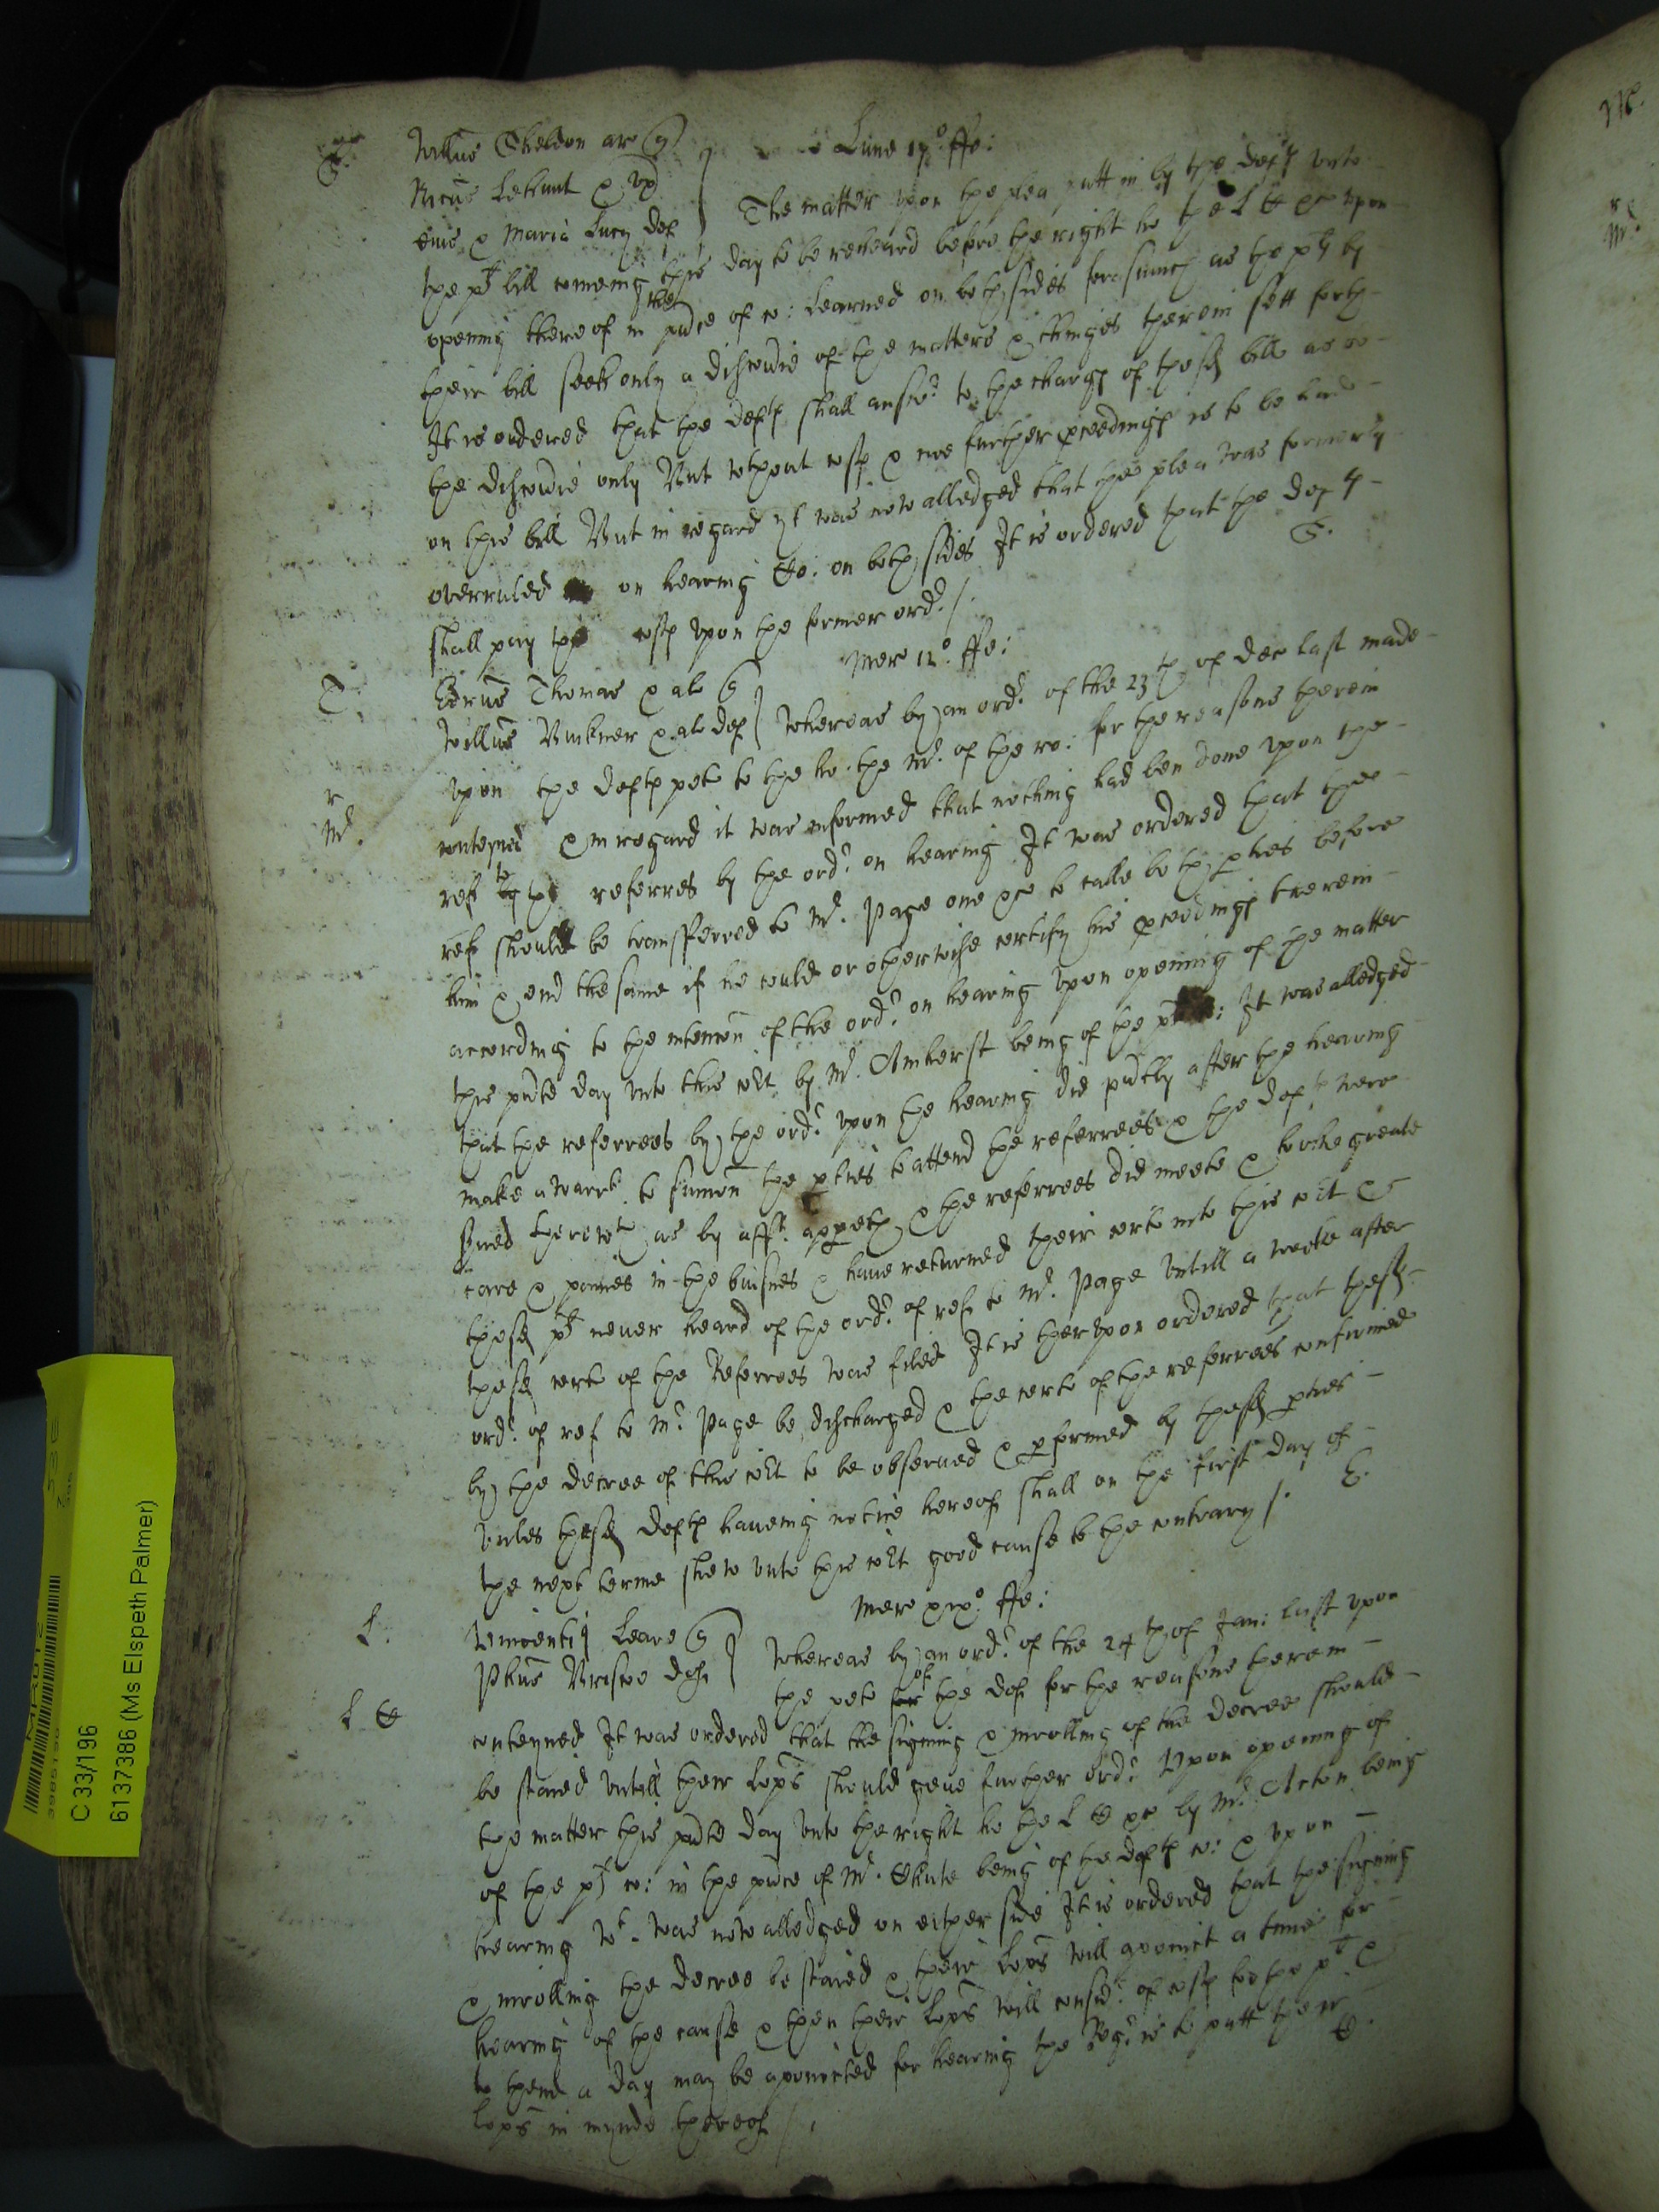 S. Willus Sheldon ar q
Lune 17° ffe:
Nicus Lehunt & ux
eius & Maria Lucy def
The matter upon the plea putt in by the deft unto
the plt bill comeing this day to be reheard before the right ho the L & upon
opening thereof in the pnce of co: learned on both sides forasmuch as the plt by
their bill seek only a discovrie of the matters & thinges therein sett forth
It is ordered that the defts shall answr to the charge of the sd bill as to
the discovrie only But wthout costs & noe further proceedings is to be had
on this bill But in regard yt was now alledged that the plea was formerly
overruled on hearing Co: on both sides It is ordered that the deft
shall pay the costs upon the former ordr /.
S.
Merc 12° ffe:
T. Edrus Thomas & al q
Willus Buckner & al def
Whereas by an ordr of the 23th of Dec last made
upon the defts petc to the ho. the Mr. of the ro: for the reasons therein
r
Mr.
conteyned & in regard it was informed that nothing had ben done upon the
ref to the referres by the ordr on hearing It was ordered that the
ref should be transferred to Mr. Page one &c to calle both pties before
him & end the same if he could or otherwise certify his proceedings therein
according to the intencon of the ordr on hearing Upon opening of the matter
this pnte day unto this cort by Mr. Amherst being of the plt : It was alledged
that the referrees by the ordr upon the hearing did pntly after the hearing
make a warrt to sumon the pties to attend the referrees & the defts were
srved therewth as by afft appeth & the referrees did meete & tooke greate
care & paines in the buisnes & have returned their certe into this cort &
the sd plt never heard of the ordr of ref to Mr. Page untill a weeke after
the sd certe of the Referrees was filed It is therupon ordered that the sd
ordr of ref to Mr Page be discharged & the certe of the referrees confirmed
by the decree of this cort to be observed & pformed by the sd pties
unles the sd defts haveing notice hereof shall on the first day of
the next terme shew unto this cort good cause to the contrary /.
E.
Merc xix° ffe:
L. Vincentiq Leare q
Phus Briscoe def
Whereas by an ordr of the 24th of Jan: last upon
the petc of the def for the reasons therein
L C
conteyned It was ordered that the signing & inrolling of the decree should
be staied untill their Lopps should geve further ordr Upon opening of
the matter this pnte day unto the right ho the L C &c by Mr. Acton being
of the plt co: in the pnce of Mr. Chute being of the defts co: & upon
hearing wt was now alledged on either side It is ordered that the signing
& inrolling the decree be staied & their Lopps will apoinct a time for
hearing of the cause & then their Lopps will considr of costs to the plt &
to thend a day may be apoincted for hearing the Regr is to putt their
Lopps in mynde thereof /.
C.
C 33/196
6137386 (Ms Elspeth Palmer)